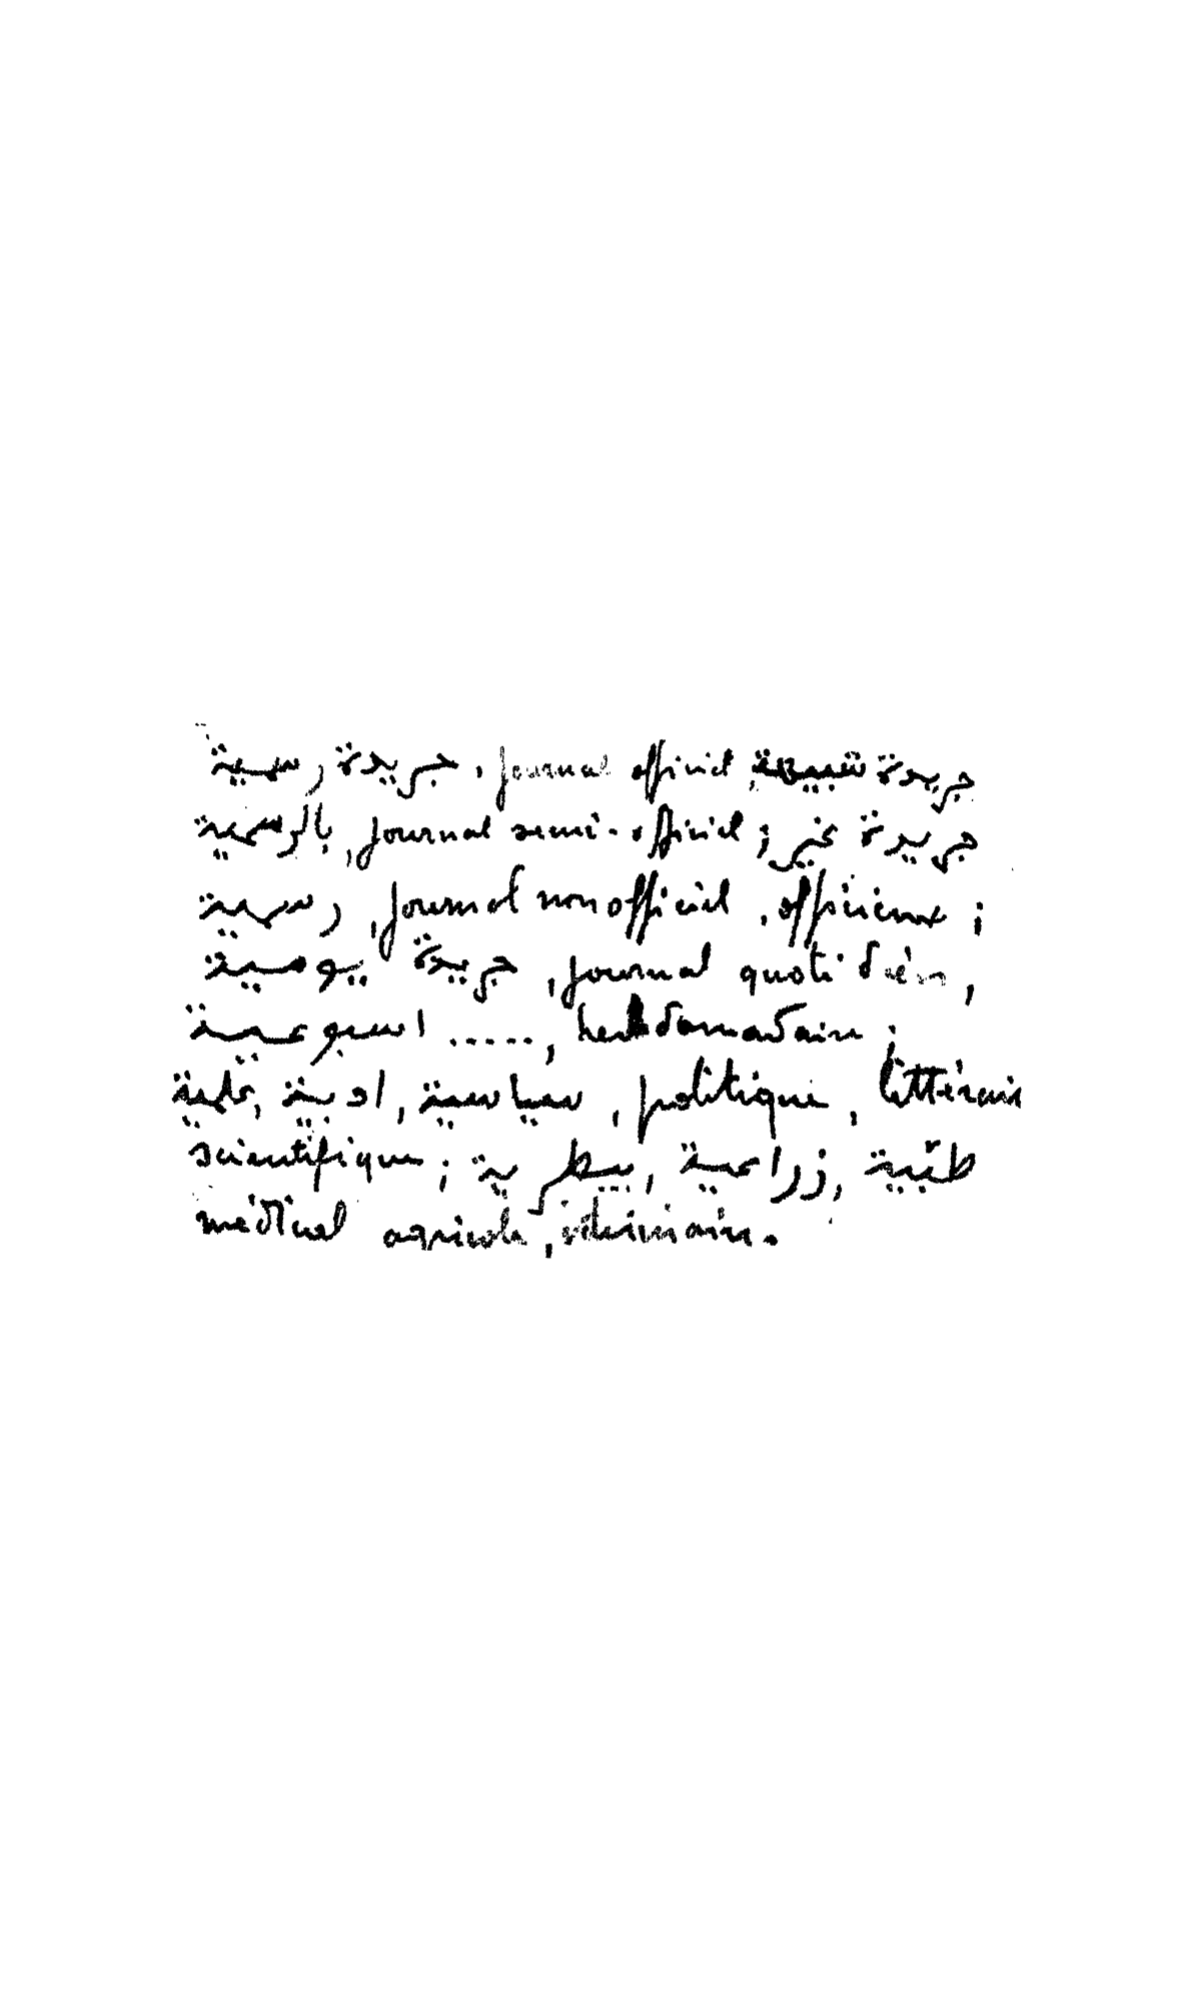 جريدة رسمية, journal officiel, جريدة شبيهة
بالرسمية, journal semi-officiel; جريدة غير
رسمية, journal non officiel, officieux;
جريدة يومية, journal quotidien,
اسبوعية ....., hebdomadaire;
سياسية, ادبية, علمية, politique, littéraire
scientifique; طبّية, زراعية, بيطرية
médical agricole, vétérinaire.